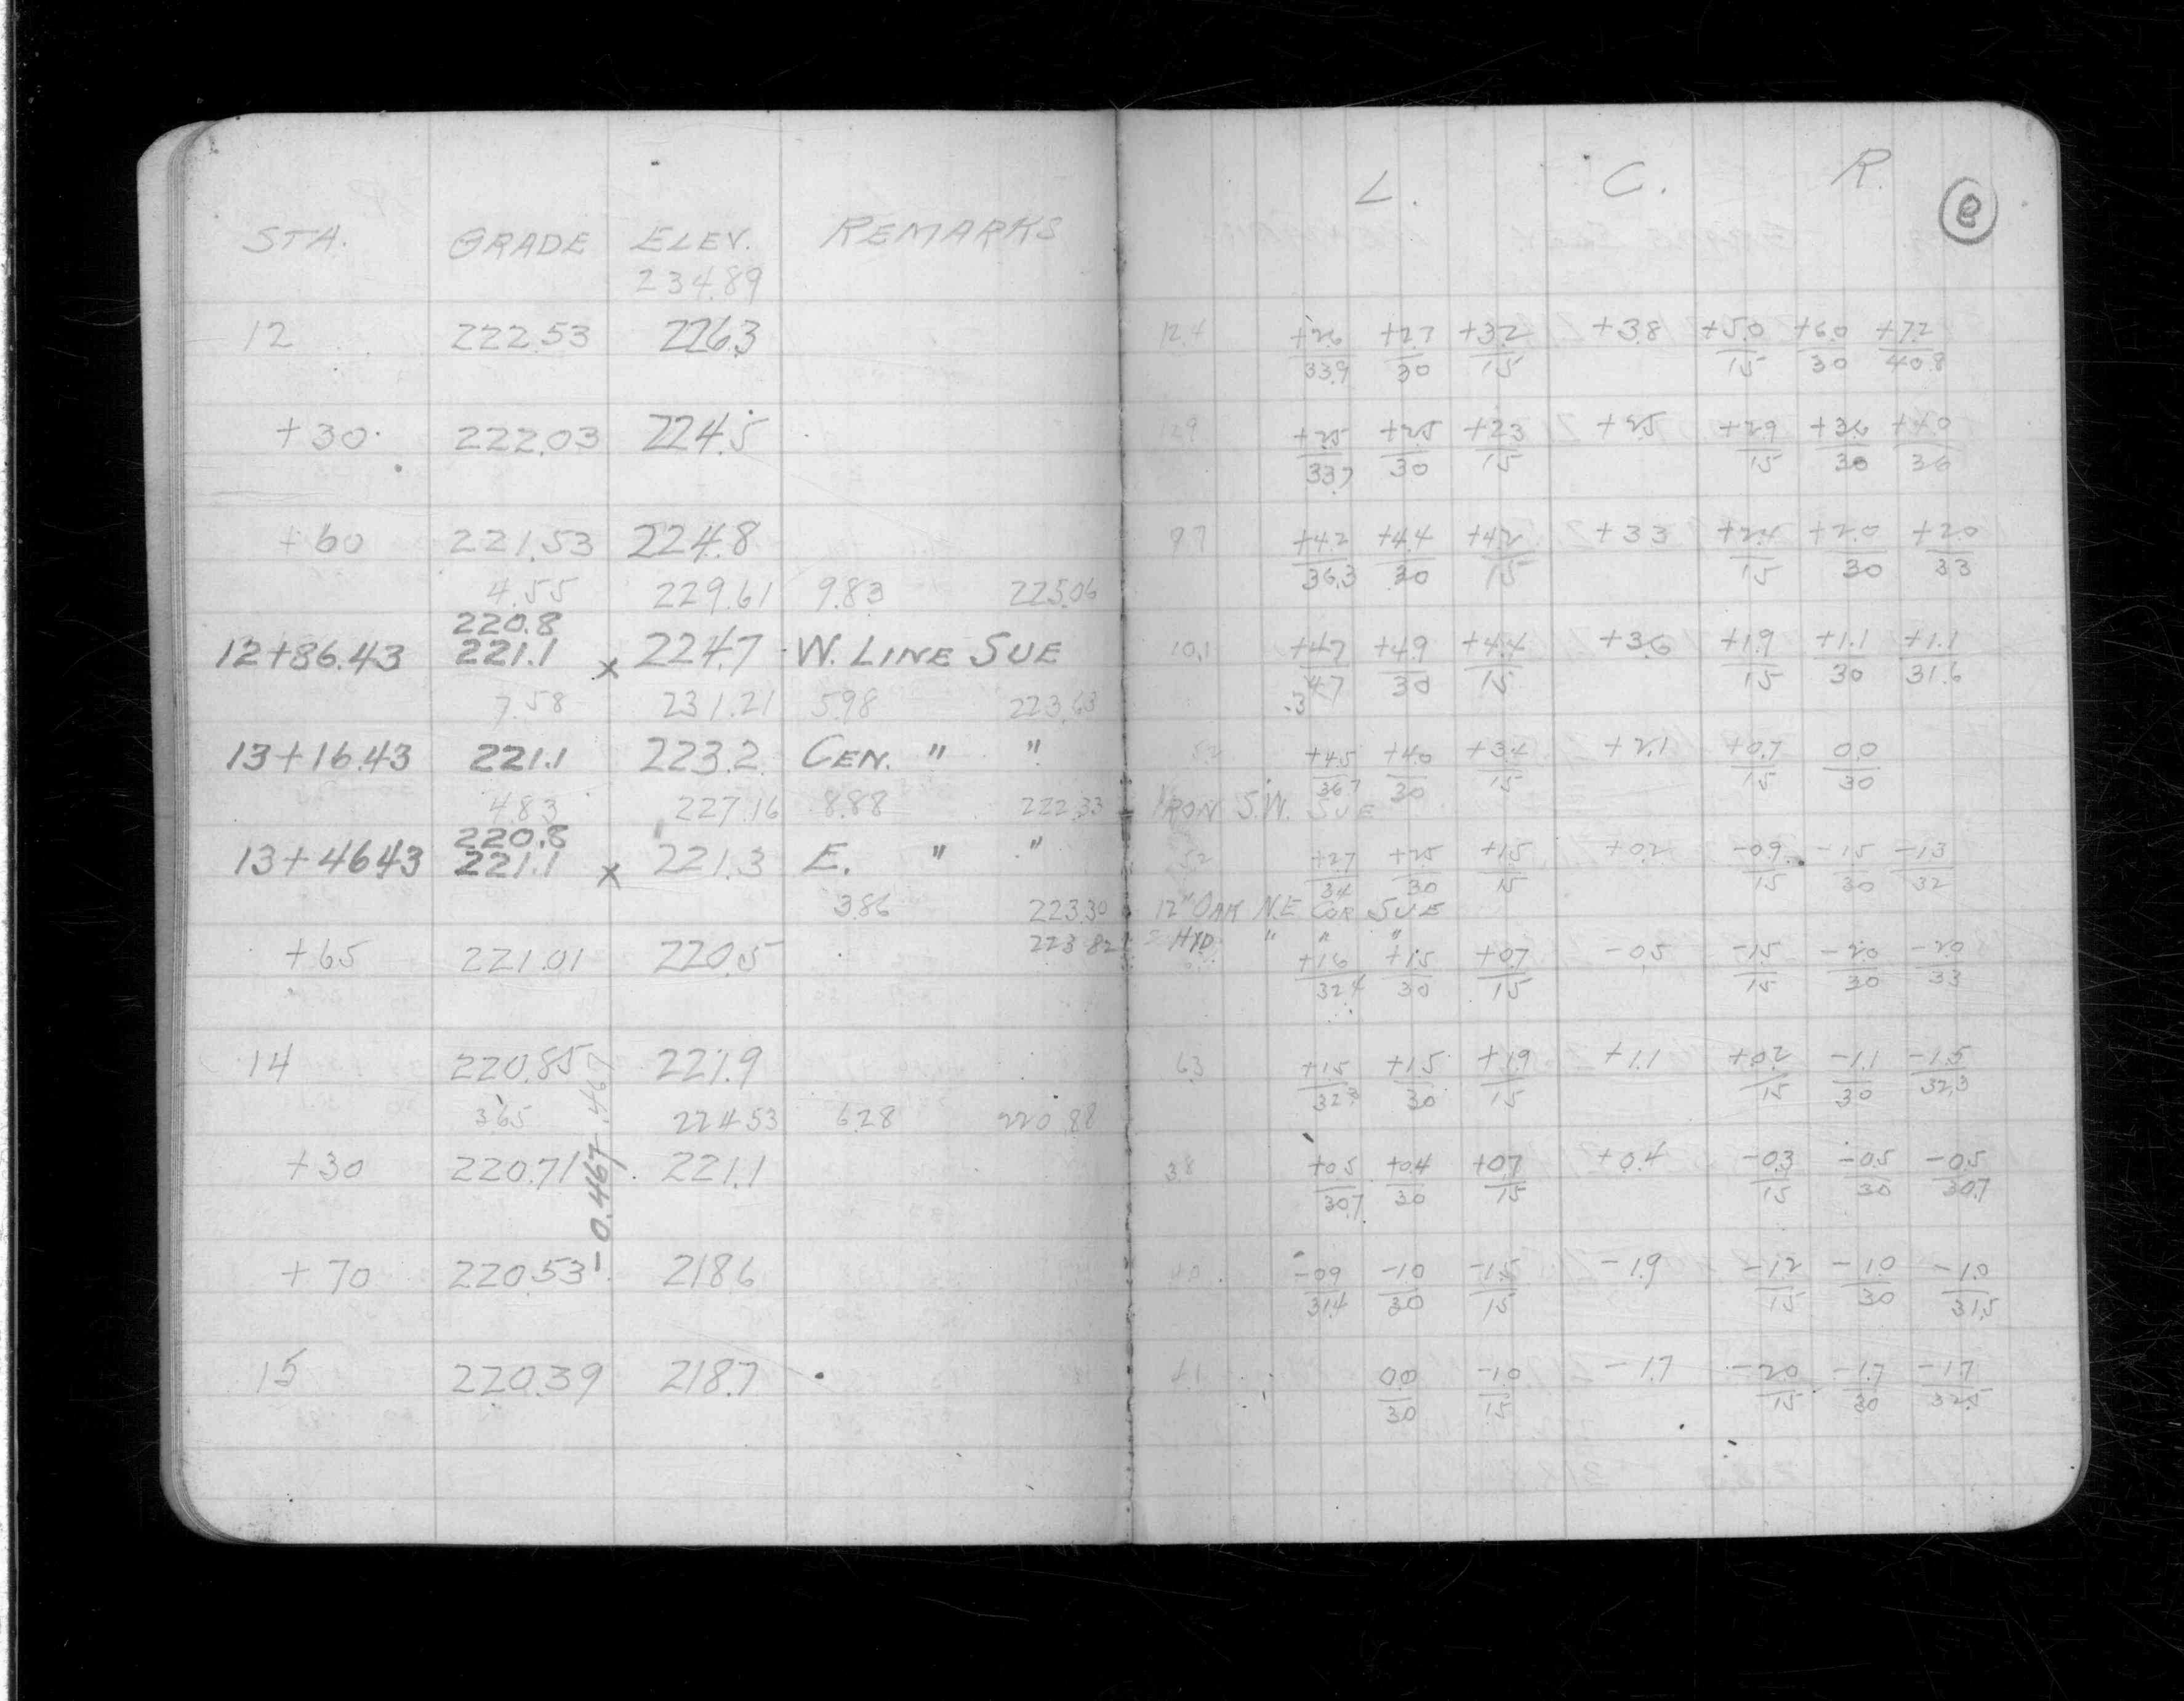 L. C. R.
STA. GRADE ELEV. REMARKS
234.89
12 222.53 226.3 12.4 +2.6/33.9 +2.7/30 +3.2/15 +3.8 +5.0/15 +6.0/30 +7.2/40.8
+30 222.03 224.5 12.9 +2.5/33.7 +2.5/30 +2.3/15 +2.5 +2.9/15 +3.6/30 +4.0/36
+60 221.53 224.8 9.7 +4.2/36.3 +4.4/30 +4.2/15 +3.3 +2.4/15 +2.0/30 +2.0/33
4.55 229.61 9.83 225.06
220.8
12+86.43 221.1 x 224.7 W. LINE SUE 10.1 +4.7/47 +4.9/30 +4.4/15 +3.6 +1.9/15 +1.1/30 +1.1/31.6
7.58 231.21 5.98 223.63
13+16.43 221.1 223.2 CEN. " " +4.5/36.7 +4.0/30 +3.4/15 +2.1 +0.7/15 0.0/30
4.83 227.16 8.88 222.33 IRON S.W. SUE
220.8
13+46.43 221.1 x 221.3 E. " " 5.2 +2.7/34 +2.5/30 +1.5/15 +0.2 -0.9/15 -1.5/30 -1.3/32
3.86 223.30 12" OAK N.E COR SUE
223.82 HYD. " " "
+65 221.01 220.5 +1.6/32.4 +1.5/30 +0.7/15 -0.5 -1.5/15 -2.0/30 -2.0/33
14 220.85 221.9 6.3 +1.5/32.3 +1.5/30 +1.9/15 +1.1 +0.2/15 -1.1/30 -1.5/32.3
3.65 224.53 6.28 220.88
+30 220.71 221.1 3.8 +0.5/30.7 +0.4/30 +0.7/15 +0.4 -0.3/15 -0.5/30 -0.5/30.7
-0.467 .467
+70 220.53 218.6 -0.9/31.4 -1.0/30 -1.5/15 -1.9 -1.2/15 -1.0/30 -1.0/31.5
15 220.39 218.7 0.0/30 -1.0/15 -1.7 -2.0/15 -1.7/30 -1.7/32.5